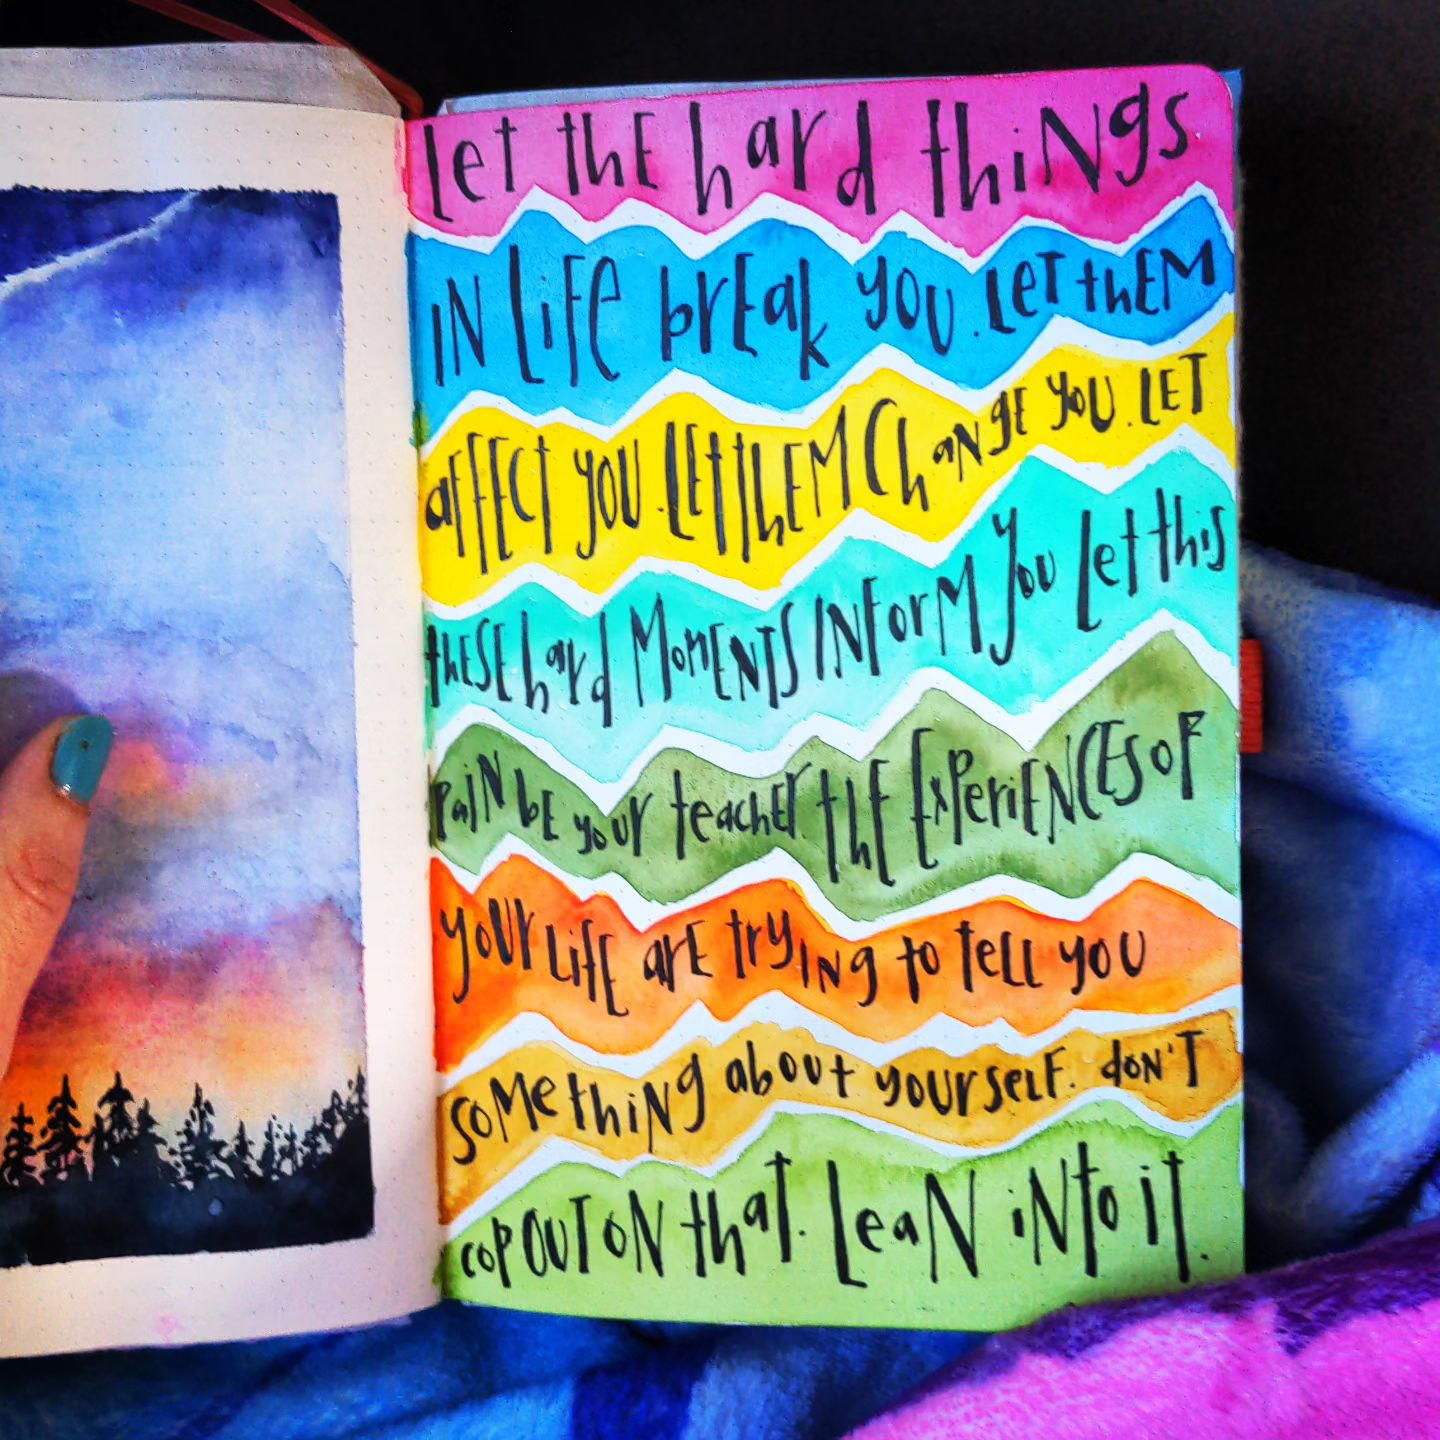 Let the hard things
in life break you. Let them
affect you. Let them change you. Let
these hard moments inform you. Let this
pain be your teacher. The experiences of
your life are trying to tell you
something about yourself. Don't
cop out on that. Lean into it.